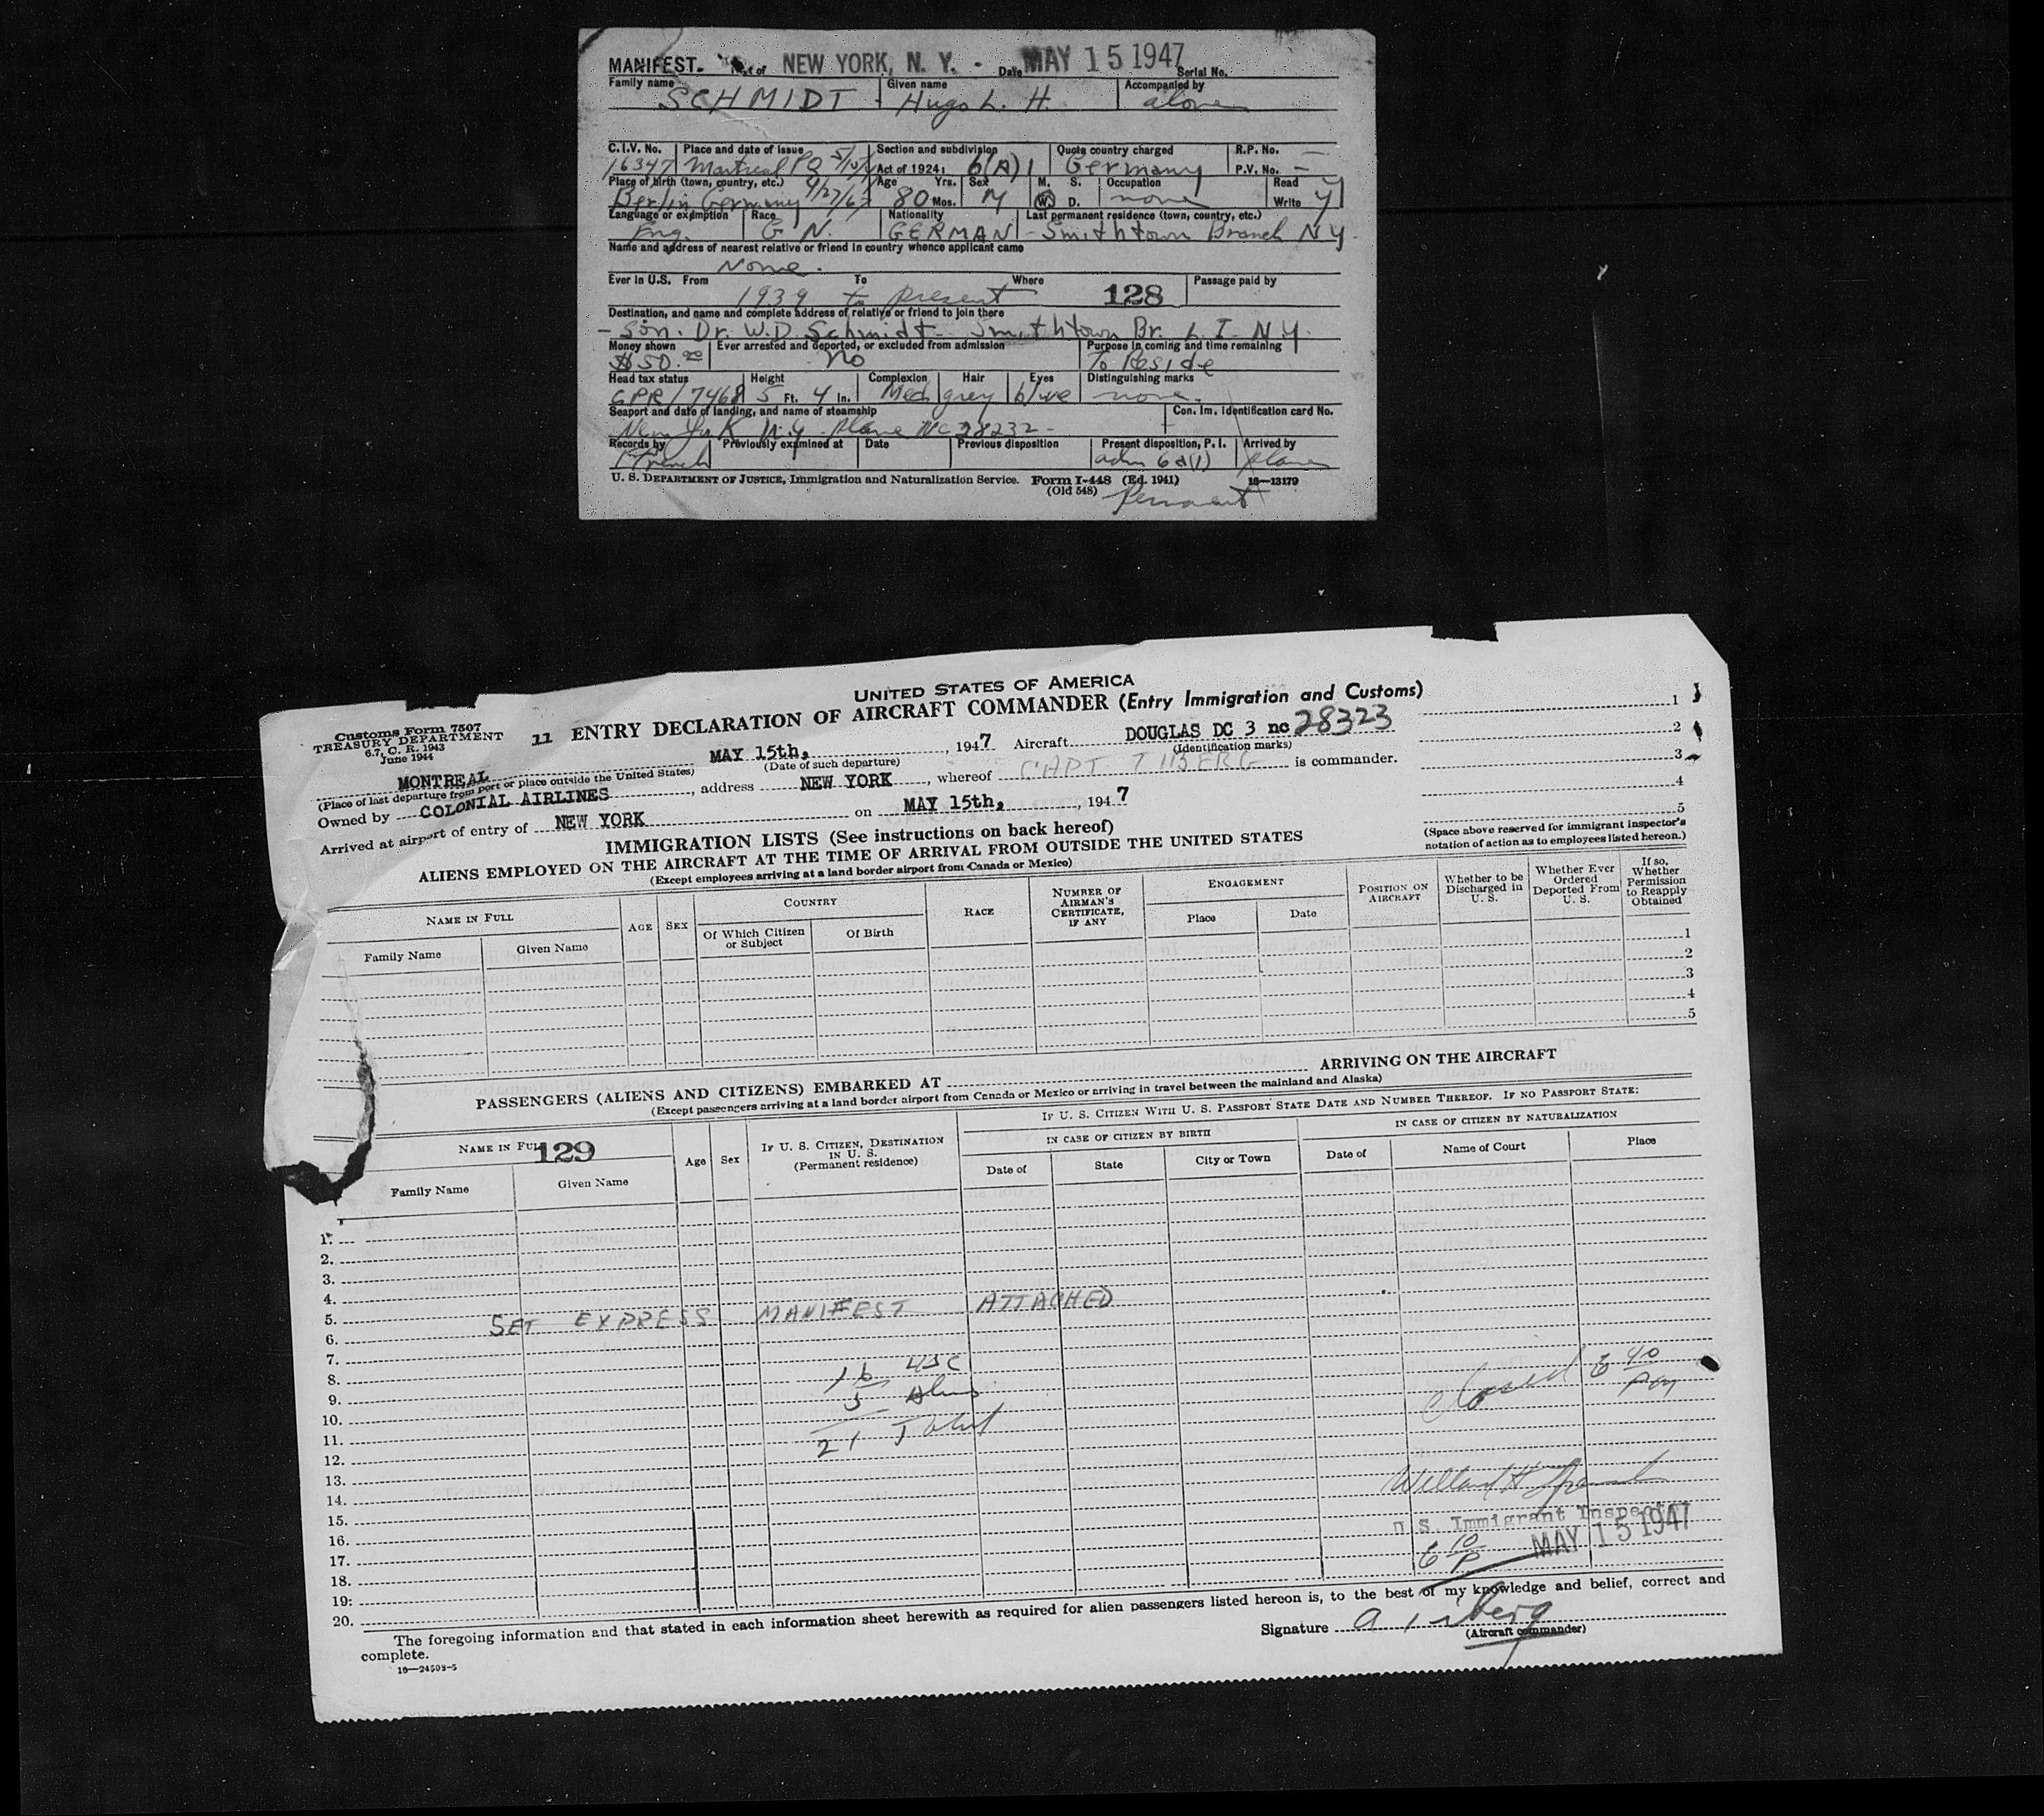 MANIFEST. of NEW YORK, N. Y. - Date MAY 15 1947 Serial No.
Family name Given name Accompanied by
SCHMIDT Hugo L. H. alone
C.I.V. No. Place and date of issue Section and subdivision Quota country charged R.P. No. —
16347 Montreal PQ Act of 1924: 6(A)1 Germany P.V. No. —
Place of birth (town, country, etc.) Age Yrs. Sex M. S. Occupation Read y
Berlin Germany 80 Mos. M W. D. none Write y
Language or exemption Race Nationality Last permanent residence (town, country, etc.)
Eng. G N. GERMAN - Smithtown Branch NY.
Name and address of nearest relative or friend in country whence applicant came
None.
Ever in U.S. From To Where Passage paid by
1939 to present 128
Destination, and name and complete address of relative or friend to join there
- Son. Dr. W.D. Schmidt - Smithtown Br. L. I. N.Y.
Money shown Ever arrested and deported, or excluded from admission Purpose in coming and time remaining
$50.00 no To Reside
Head tax status Height Complexion Hair Eyes Distinguishing marks
GPR/7468 5 Ft. 4 In. Med grey blue none.
Seaport and date of landing, and name of steamship Con. Im. Identification card No.
New York N.Y. plane NC 28232 -
Records by Previously examined at Date Previous disposition Present disposition, P. I. Arrived by
adm 6a(1) plane
U. S. DEPARTMENT OF JUSTICE, Immigration and Naturalization Service. Form I-448 (Ed. 1941) 16—13179
(Old 548)
UNITED STATES OF AMERICA
Customs Form 7507
TREASURY DEPARTMENT
6.7, C. R. 1943
June 1944
11 ENTRY DECLARATION OF AIRCRAFT COMMANDER (Entry Immigration and Customs)
MONTREAL MAY 15th, , 1947 Aircraft DOUGLAS DC 3 nc 28323
(Place of last departure from port or place outside the United States) (Date of such departure) (Identification marks)
Owned by COLONIAL AIRLINES , address NEW YORK , whereof CAPT. is commander.
Arrived at airport of entry of NEW YORK on MAY 15th, , 1947
1
2
3
4
5
(Space above reserved for immigrant inspector's
notation of action as to employees listed hereon.)
IMMIGRATION LISTS (See instructions on back hereof)
ALIENS EMPLOYED ON THE AIRCRAFT AT THE TIME OF ARRIVAL FROM OUTSIDE THE UNITED STATES
(Except employees arriving at a land border airport from Canada or Mexico)
NAME IN FULL AGE SEX COUNTRY RACE NUMBER OF AIRMAN'S CERTIFICATE, IF ANY ENGAGEMENT POSITION ON AIRCRAFT Whether to be Discharged in U. S. Whether Ever Ordered Deported From U. S. If so, Whether Permission to Reapply Obtained
Family Name Given Name Of Which Citizen or Subject Of Birth Place Date
1
2
3
4
5
PASSENGERS (ALIENS AND CITIZENS) EMBARKED AT ARRIVING ON THE AIRCRAFT
(Except passengers arriving at a land border airport from Canada or Mexico or arriving in travel between the mainland and Alaska)
NAME IN FUL 129 Age Sex IF U. S. CITIZEN, DESTINATION IN U. S. (Permanent residence) IF U. S. CITIZEN WITH U. S. PASSPORT STATE DATE AND NUMBER THEREOF. IF NO PASSPORT STATE:
IN CASE OF CITIZEN BY BIRTH IN CASE OF CITIZEN BY NATURALIZATION
Family Name Given Name Date of State City or Town Date of Name of Court Place
1.
2.
3.
4.
5.
SET EXPRESS MANIFEST ATTACHED
6.
7.
8. 16 USC
9. 5 Aliens
closed 6 40 PM
10.
11. 21 Total
12.
13.
14.
15.
U. S. Immigrant Inspector
16.
17. 6 10 P MAY 15 1947
18.
19.
20.
The foregoing information and that stated in each information sheet herewith as required for alien passengers listed hereon is, to the best of my knowledge and belief, correct and
complete.
Signature
(Aircraft commander)
16—24503-5